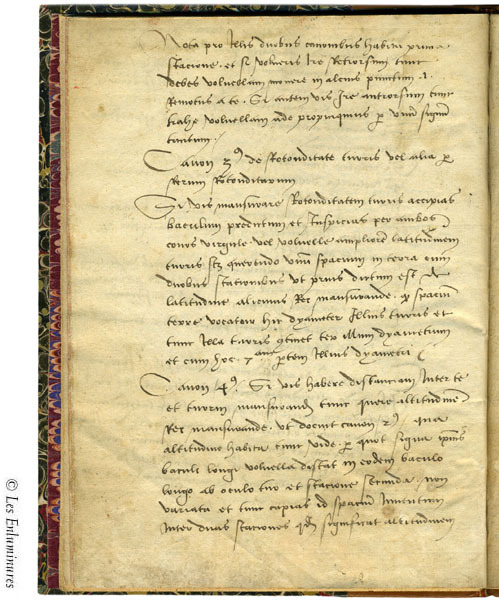 Nota pro Illis duobus canonibus habita prima
stacione. et si volueris Ire Retrorsum tunc
debes voluellam mouere in alcius punctum .1.
Remotius a te. Si autem vis Ire antrorsum tunc
trahe voluellam ade propinquius p vnum signum
tantum.
Canon 3⁹ de Rotonditate turris vel alia p
Rerum Rotonditatum
Si vis mansurare Rotonditatem turris accipias
baculum predictum et Inspicias per ambos
conos virgule vel voluelle ampliorem latitudinem
turris scz querendo vnum spacium in terra cum
duobus stacionibus vt prius dictum est de
latitudine alicuius Rei mansurande. q spacium
terre vocatur hic dyameter Illius turris et
tunc Illa turris continet ter illum dyametrum
et cum hoc 7am ptem Illius dyametri
Canon 4⁹. Si vis habere distanciam Inter te
et turrim mansurandam tunc quere altitudinem
Rei mansurande. vt docuit canon 2⁹. qua
altitudine habita tunc vide. p quot signa ipsius
baculi longi voluella distat in eodem baculo
longo ab oculo tuo et stacione secunda. non
variata et tunc capias id spacium Inuentum
Inter duas staciones qd significat altitudinem
© Les Enluminures